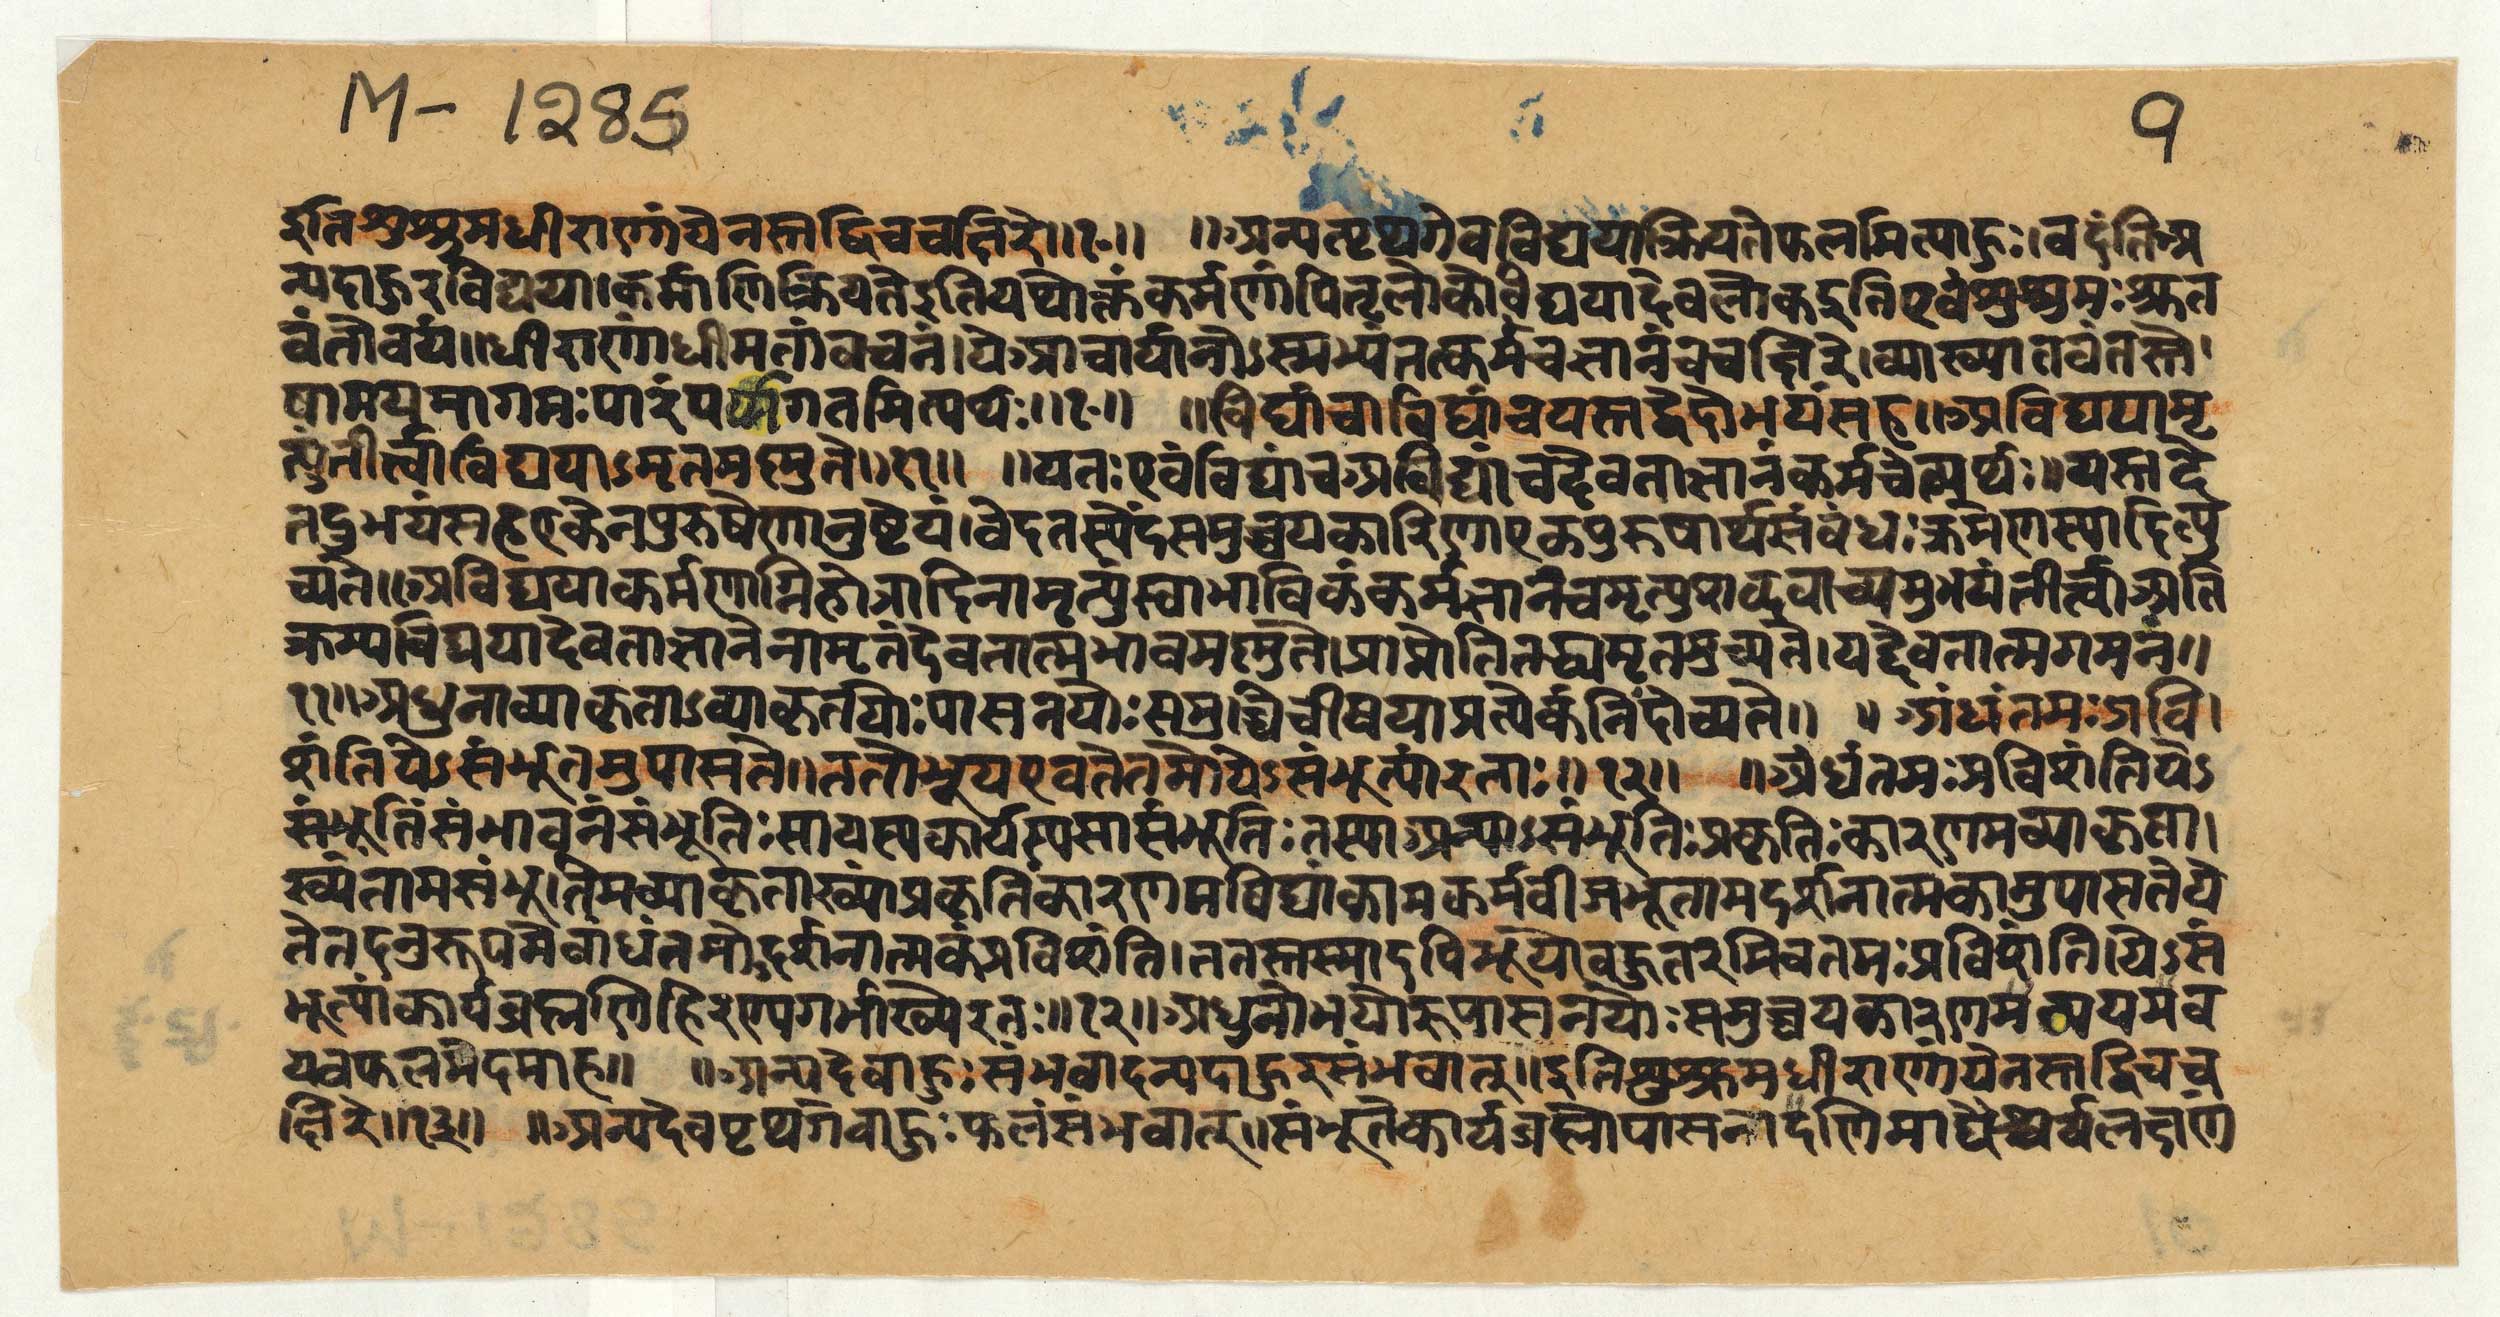 M- 1285 १
इतिशुश्रुमधीराणांयेनस्तद्विचचक्षिरे॥१०॥ ॥अन्यत्पृथगेवविद्ययाक्रियतेफलमित्याहुः।वदंतिअ
न्यदाहुरविद्यया।कर्मणाक्रियतेइतियथोक्तंकर्मणापितृलोकोविद्ययादेवलोकइतिएवंशुश्रुमःश्रुत
वंतोवयं॥धीराणांधीमतांवचनं।येआचार्यानोऽस्मभ्यंतत्कर्मचज्ञानंचचचक्षिरे।व्याख्यातवंतस्ते
षामयमागमःपारंपर्यागतमित्यर्थः॥१०॥ ॥विद्यांचाविद्यांचयस्तद्वेदोभयंसह॥अविद्ययामृ
त्युंतीर्त्वाविद्ययाऽमृतमश्नुते॥११॥ ॥यतःएवंविद्यांचअविद्यांचदेवताज्ञानंकर्मचेत्यर्थः॥यस्तदे
तदुभयंसहएकेनपुरुषेणानुष्ठेयं।वेदतस्यैवंसमुच्चयकारिणएकपुरुषार्थसंबंधःक्रमेणस्यादित्यु
च्यते॥अविद्ययाकर्मणाग्निहोत्रादिनामृत्युंस्वाभाविकंकर्मज्ञानंचमृत्युशब्दवाच्यमुभयंतीर्त्वाअति
क्रम्यविद्ययादेवताज्ञानेनामृतंदेवतात्मभावमश्नुते।प्राप्नोतितद्ध्यमृतमुच्यते।यद्देवतात्मगमनं॥
११॥अधुनाव्याकृताऽव्याकृतयोःपासनयोःसमुच्चिचीषयाप्रत्येकंनिंदोच्यते॥ ॥अंधंतमःप्रवि।
शंतियेऽसंभूतिमुपासते॥ततोभूयएवतेतमोयेऽसंभूत्यांरताः॥१२॥ ॥अंधंतमःप्रविशंतियेऽ
संभूतिंसंभावनंसंभूतिःसायस्यकार्यस्यसासंभूतिःतस्याअन्याऽसंभूतिःप्रकृतिःकारणमव्याकृता।
ख्यंतामसंभू।तिमव्याकृताख्यांप्रकृतिंकारणमविद्यांकामकर्मबीजभूतामदर्शनात्मकामुपासतेये
तेतदनुरूपमेवांधंतमोऽदर्शनात्मकंप्रविशंति।ततस्तस्मादपिभूयोबहुतरमिवतमःप्रविशंति।येऽसं
भूत्यांकार्यब्रह्मणिहिरण्यगर्भाख्येरतः॥१२॥अधुनोभयोरुपासनयोःसमुच्चयकारणम यमव
यवफलभेदमाह॥ ॥अन्यदेवाहुःसंभवादन्यदाहुरसंभवात्॥इतिशुश्रुमधीराणांयेनस्तद्विचच
क्षिरे॥१३॥ ॥अन्यदेवपृथगेवाहुःफलंसंभवात्॥संभूतेकार्यब्रह्मोपासनादणिमाद्यैश्वर्यलक्षणं